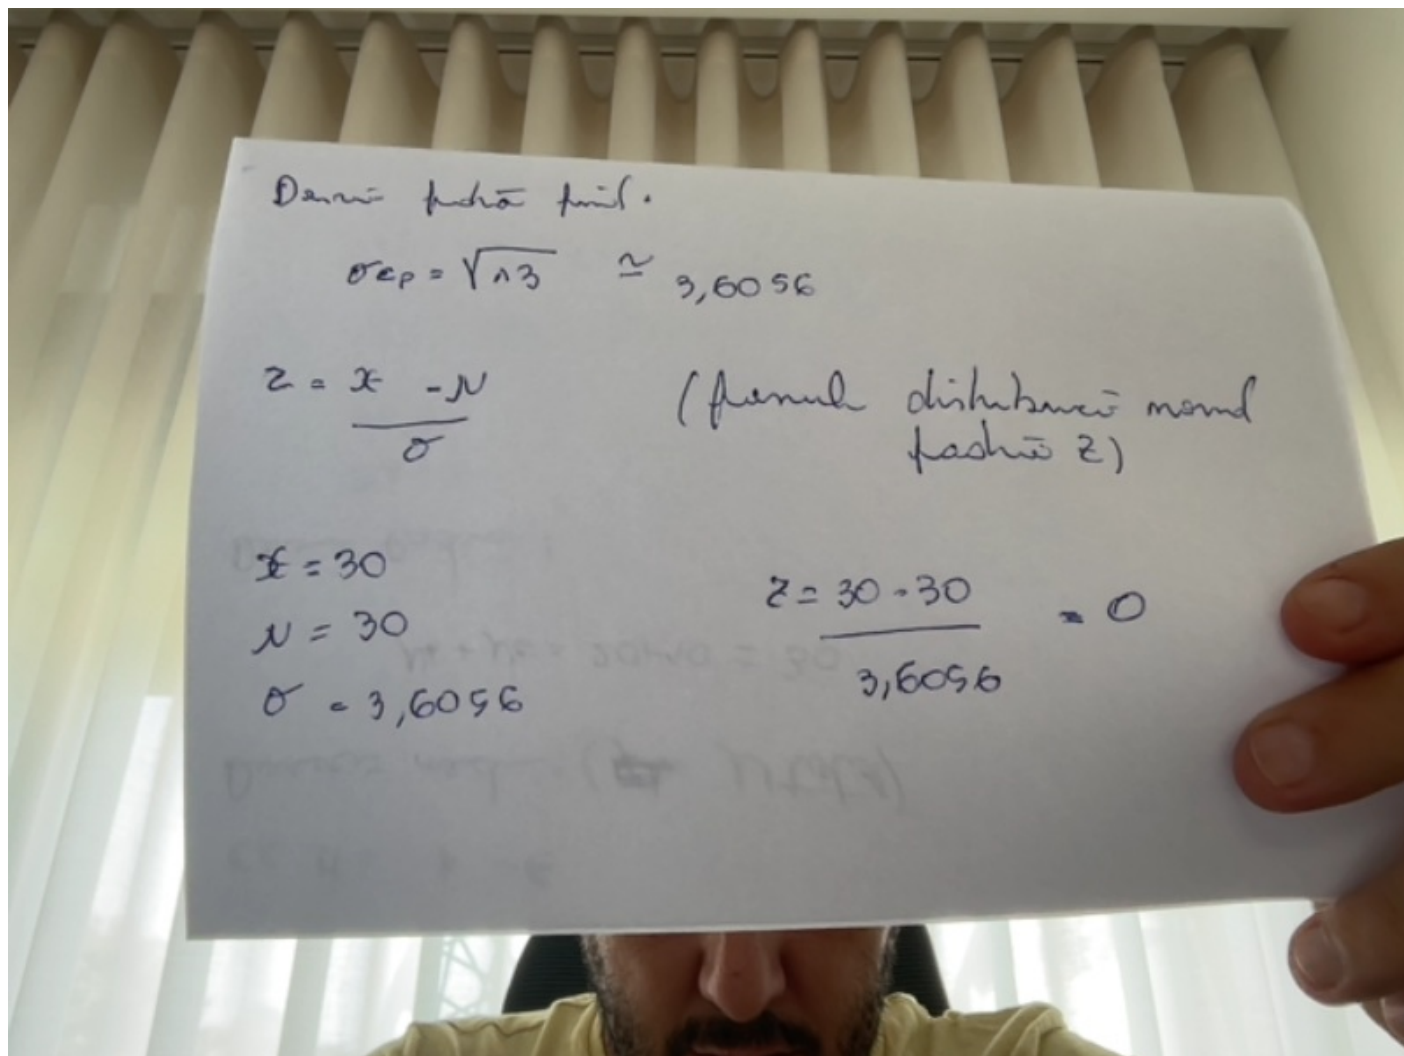 Desvio padrão final.
σcp = √13 ≃ 3,6056
z = x - μ
σ
(formula distribuição normal
padrão z)
x = 30
μ = 30
σ = 3,6056
z = 30 - 30 = 0
3,6056